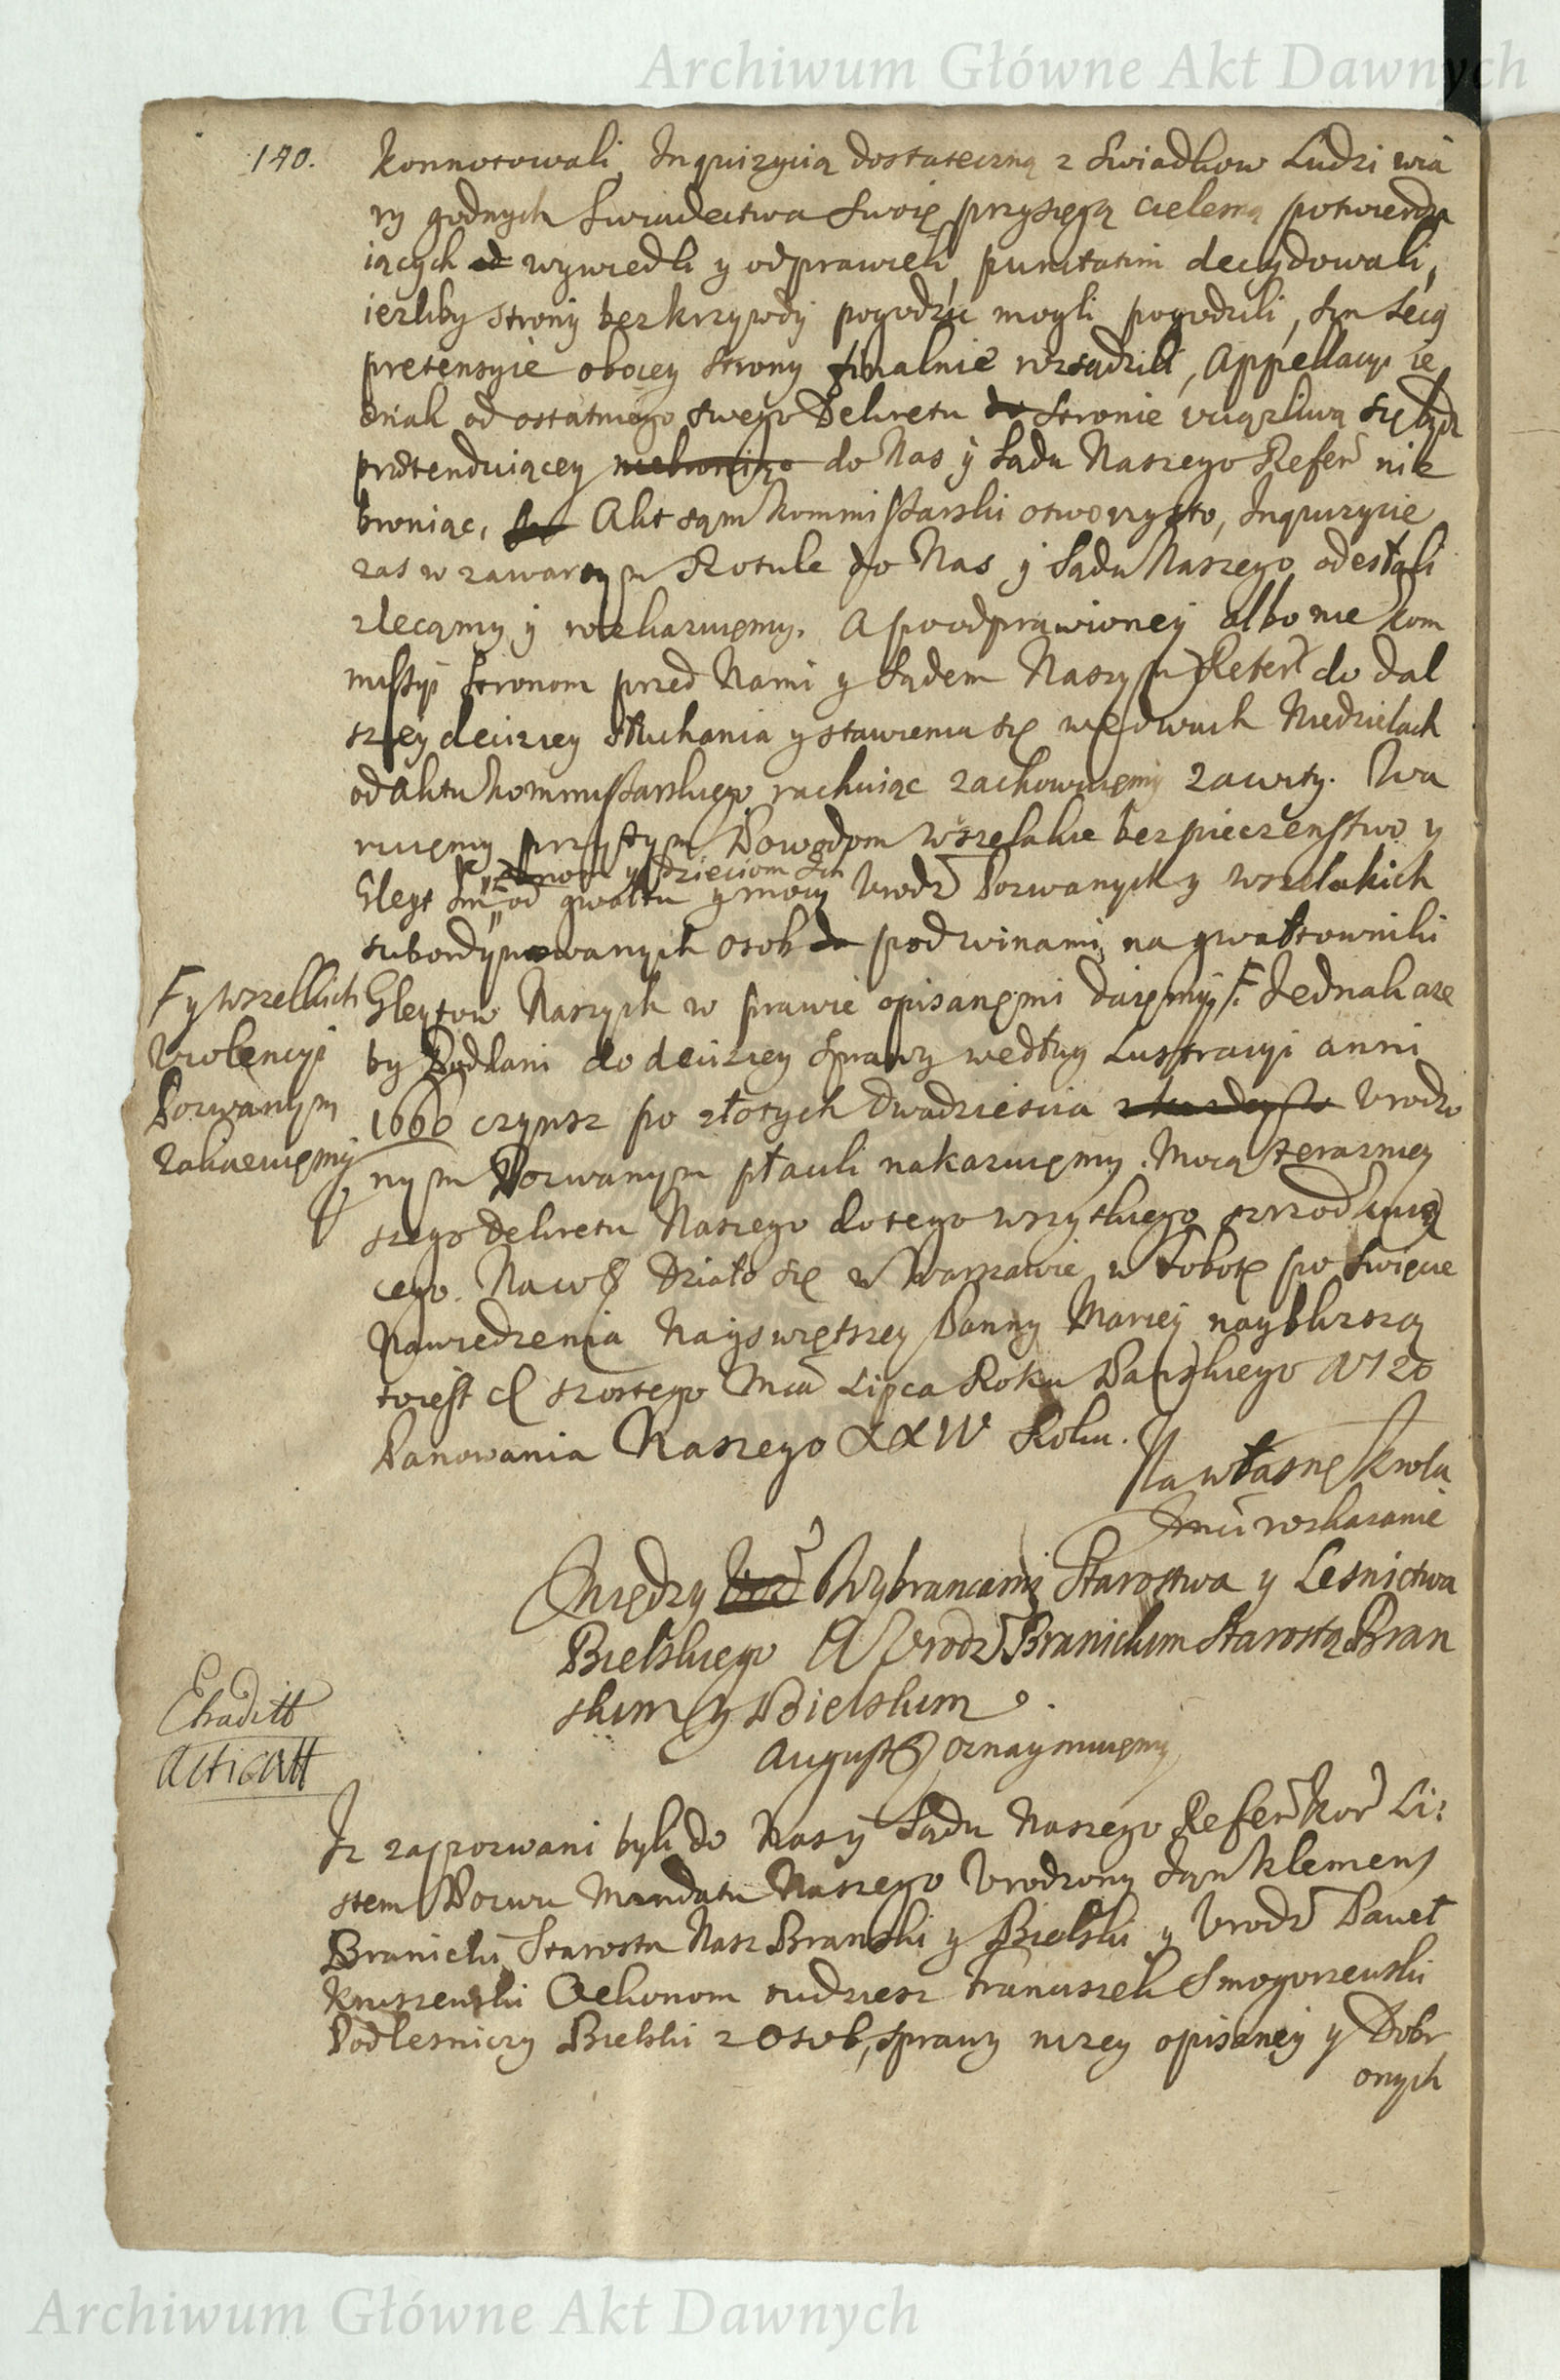 Archiwum Główne Akt Dawnych
140.
konnotowali, Inquizycią dostateczną z Swiadkow Ludzi wia
ry godnych Swiadectwa Swoię przysięgą cielesną potwierdza
iących wywiedli y odprawieli, punctatim decydowali,
ieżliby strony bez krzywdy pogodzić mogli pogodzili, sin secg
pretensyie oboiey strony finalnie rozsądzili, Appellacyi ie
dnak od ostatniego swego Dekretu stronie uciążliwą się bydz
prætenduiącey do Nas y Sądu Naszego Refer nie
broniąc, Akt sąm kommissarski otworzysto, Inquizycie
zas w zawartym Rotule do Nas y Sądu Naszego odesłali
zlecąmy y rozkazuięmy. A po odprawioney albo nie kom
missyi stronom przed Nami y Sądem Naszym Refer do dal
szey deciziey słuchania y stawienia się we dwuch Niedzielach
od aktu kommissarskiego rachuiąc zachowuięmy zawity. Wa
ruięmy przytym Powodom wszelakie bezpieczenstwo y
y Dzieciom Ich
Gleyt od gwałtu y mocy Urodz Pozwanych y wszelakich
subordynowanych osob pod winami na gwałtowniki
Gleytow Naszych w prawie opisanęmi daięmy F. Jednak aze
F y wszelkich
Violencyi
Pozwanym
Zakazuięmy
by Poddani do deciziey Sprawy według Lustracyi anni
1660 czynsz po złotych dwadziescia Urodzo
nym Pozwanym płacili nakazuięmy. Mocą terazniey
szego dekretu Naszego do tego wszytkiego szrzoduiąc
cego. Na co Działo się w Warszawie w Sobotę po Swięcie
Nawiedzenia Nayswiętszey Panny Mariey naybliższą
toiest d szostego Mca Lipca Roku Panskiego 1720
Panowania Naszego XXIV Roku.
Na własne Krola
Jmci rozkazanie
Między Wybrancami Starostwa y Lesnictwa
Bielskiego A Urodz Branickim Starostą Bran
skim y Bielskim
Extraditt
Acticatt
August oznaymuięmy
Iz zapozwani byli do Nas y Sądu Naszego Refer Kor Li:
stem Pozwu Mandatu Naszego Urodzony Jąn Klemens
Branicki Starosta Nasz Branski y Bielski y Urodz Paweł
Kruszewski Oekonom tudziesz Franciszek Smogorzewski
Podlesniczy Bielski z Osob, sprawy nizey opisaney y Dobr
onych
Archiwum Główne Akt Dawnych